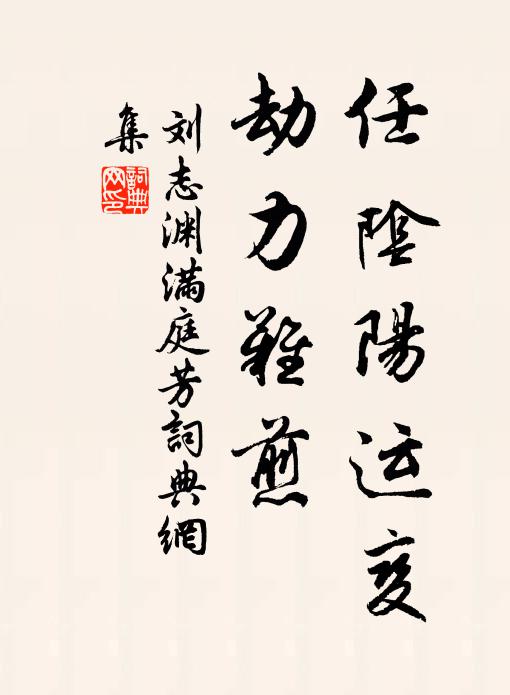 任陰陽运变
劫力難煎
刘志渊满庭芳詞典網
集
詞典網印